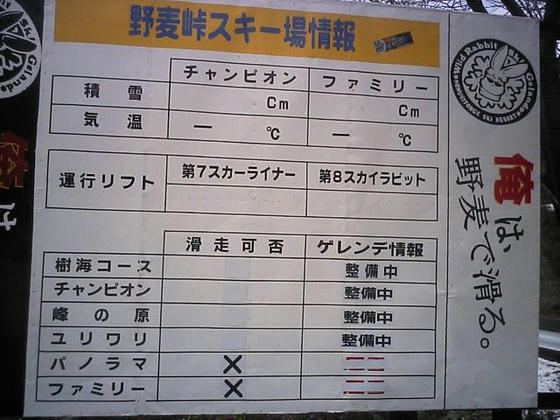 野麦峠スキー場情報
チャンピオン ファミリー
積雪 Cm Cm
気温 ー ℃ ー ℃
運行リフト 第7スカーライナー 第8スカイラビット
滑走可否 ゲレンデ情報
樹海コース 整備中
チャンピオン 整備中
峰の原 整備中
ユリワリ 整備中
パノラマ ×
ファミリー ×
Wild Rabbit
俺は
野麦で滑る。
俺は